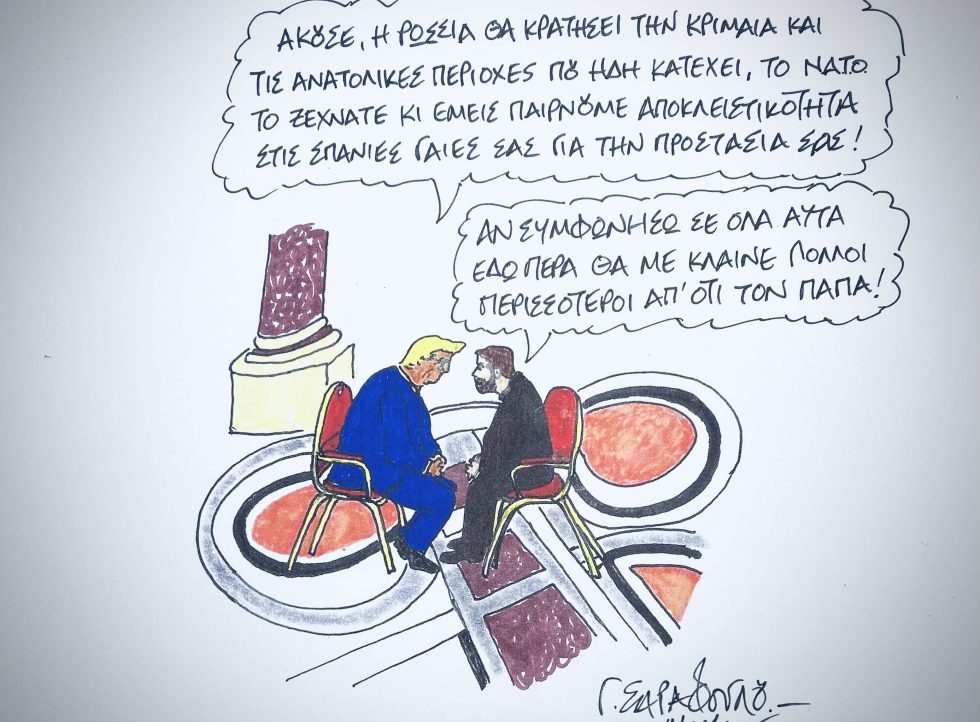 ΑΚΟΥΣΕ, Η ΡΩΣΣΙΑ ΘΑ ΚΡΑΤΗΣΕΙ ΤΗΝ ΚΡΙΜΑΙΑ ΚΑΙ
ΤΙΣ ΑΝΑΤΟΛΙΚΕΣ ΠΕΡΙΟΧΕΣ ΠΟΥ ΗΔΗ ΚΑΤΕΧΕΙ, ΤΟ ΝΑΤΟ
ΤΟ ΞΕΧΝΑΤΕ ΚΙ ΕΜΕΙΣ ΠΑΙΡΝΟΥΜΕ ΑΠΟΚΛΕΙΣΤΙΚΟΤΗΤΑ
ΣΤΙΣ ΣΠΑΝΙΕΣ ΓΑΙΕΣ ΣΑΣ ΓΙΑ ΤΗΝ ΠΡΟΣΤΑΣΙΑ ΣΑΣ!
ΑΝ ΣΥΜΦΩΝΗΣΩ ΣΕ ΟΛΑ ΑΥΤΑ
ΕΔΩ ΠΕΡΑ ΘΑ ΜΕ ΚΛΑΙΝΕ ΠΟΛΛΟΙ
ΠΕΡΙΣΣΟΤΕΡΟΙ ΑΠ' ΟΤΙ ΤΟΝ ΠΑΠΑ!
Γ. ΣΑΡΑΦΟΓΛΟΥ.